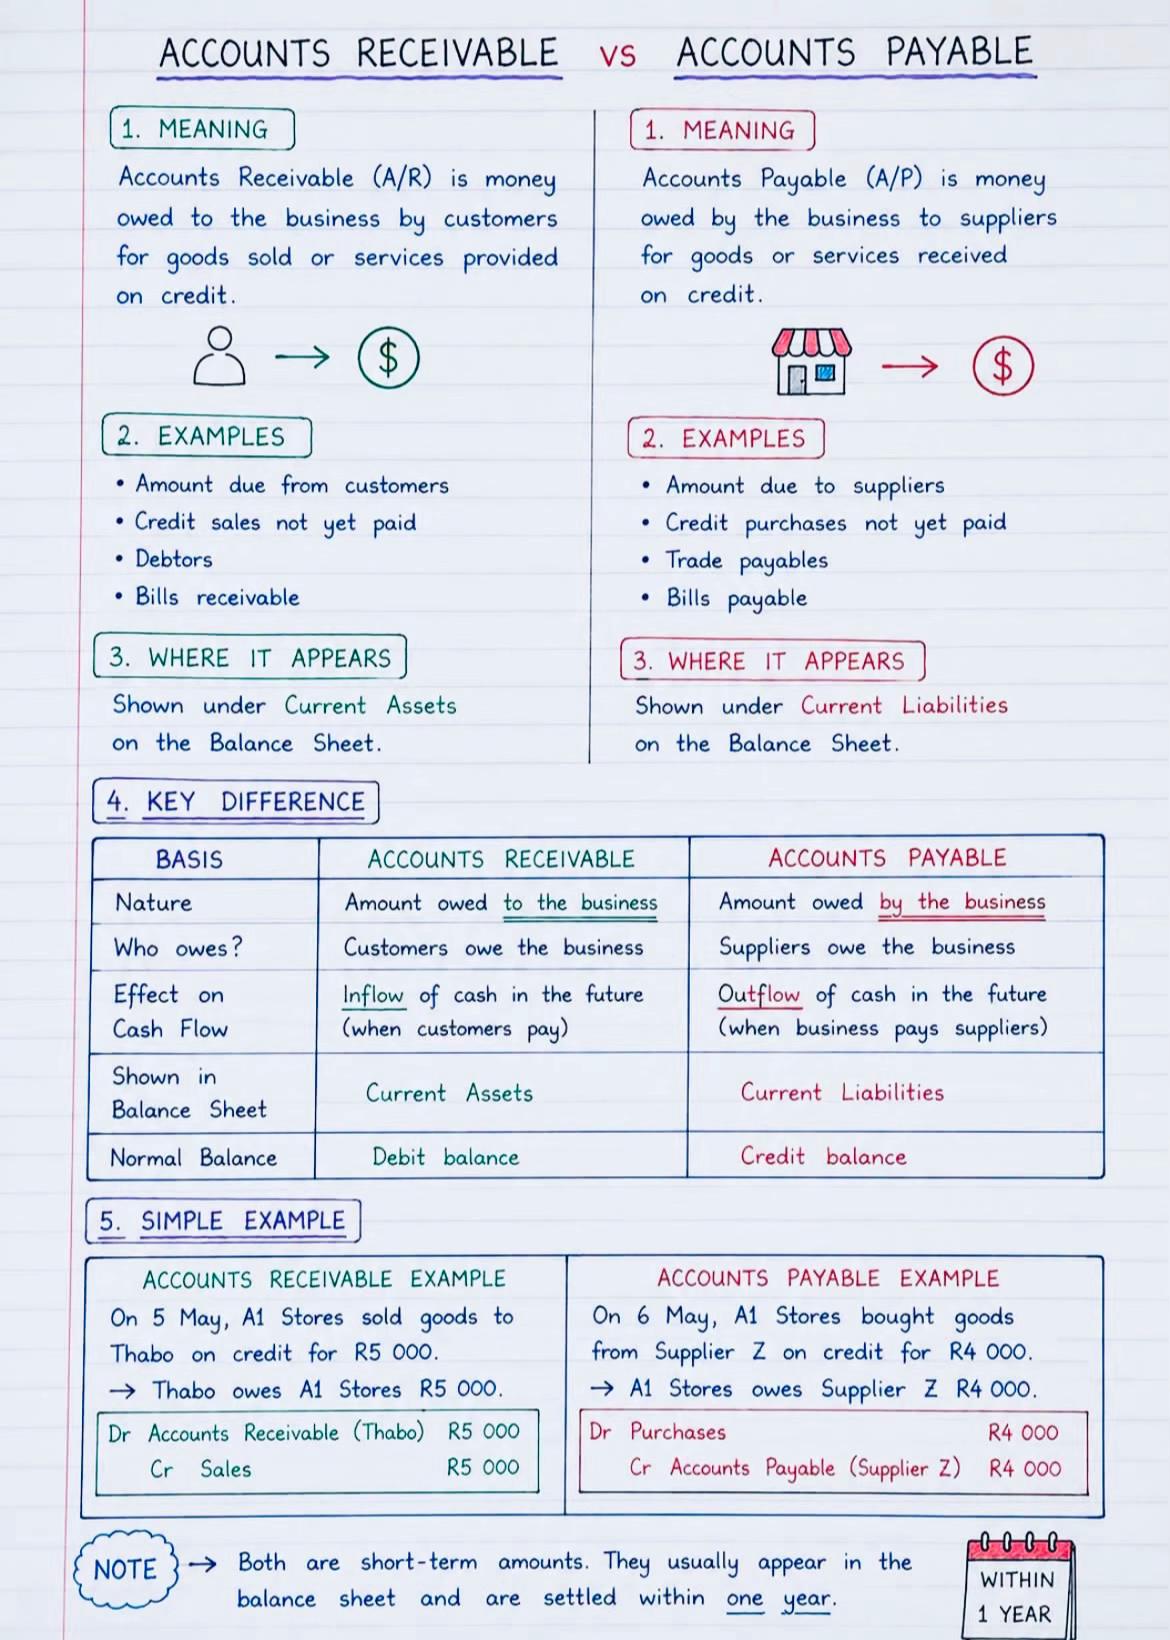 ACCOUNTS RECEIVABLE VS ACCOUNTS PAYABLE
1. MEANING
Accounts Receivable (A/R) is money
owed to the business by customers
for goods sold or services provided
on credit.
$
2. EXAMPLES
• Amount due from customers
• Credit sales not yet paid
• Debtors
• Bills receivable
3. WHERE IT APPEARS
Shown under Current Assets
on the Balance Sheet.
1. MEANING
Accounts Payable (A/P) is money
owed by the business to suppliers
for goods or services received
on credit.
$
2. EXAMPLES
• Amount due to suppliers
• Credit purchases not yet paid
• Trade payables
• Bills payable
3. WHERE IT APPEARS
Shown under Current Liabilities
on the Balance Sheet.
4. KEY DIFFERENCE
BASIS ACCOUNTS RECEIVABLE ACCOUNTS PAYABLE
Nature Amount owed to the business Amount owed by the business
Who owes? Customers owe the business Suppliers owe the business
Effect on Inflow of cash in the future Outflow of cash in the future
Cash Flow (when customers pay) (when business pays suppliers)
Shown in
Balance Sheet Current Assets Current Liabilities
Normal Balance Debit balance Credit balance
5. SIMPLE EXAMPLE
ACCOUNTS RECEIVABLE EXAMPLE
On 5 May, A1 Stores sold goods to
Thabo on credit for R5 000.
→ Thabo owes A1 Stores R5 000.
Dr Accounts Receivable (Thabo) R5 000
Cr Sales R5 000
ACCOUNTS PAYABLE EXAMPLE
On 6 May, A1 Stores bought goods
from Supplier Z on credit for R4 000.
→ A1 Stores owes Supplier Z R4 000.
Dr Purchases R4 000
Cr Accounts Payable (Supplier Z) R4 000
NOTE → Both are short-term amounts. They usually appear in the
balance sheet and are settled within one year.
WITHIN
1 YEAR